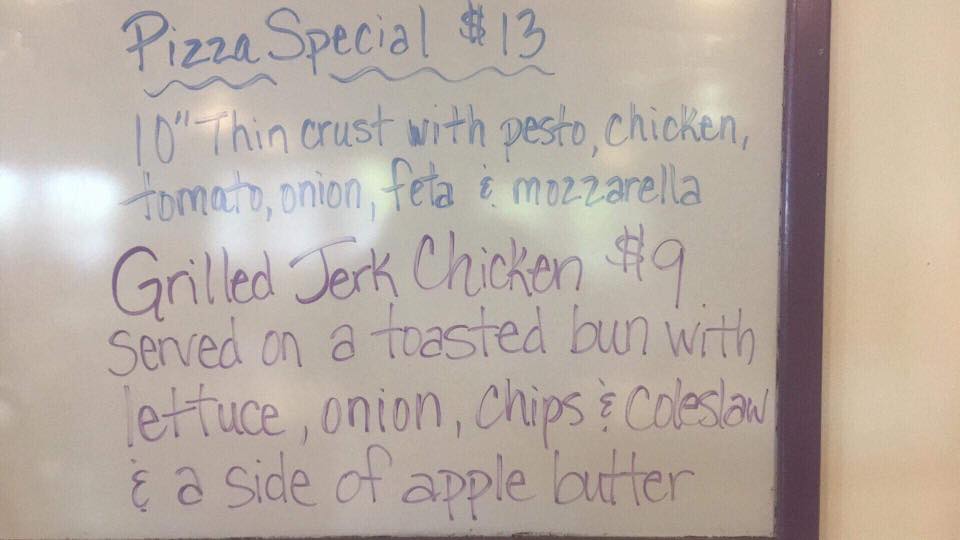 Pizza Special $13
10" Thin crust with pesto, chicken,
tomato, onion, feta & mozzarella
Grilled Jerk Chicken $9
served on a toasted bun with
lettuce, onion, chips & coleslaw
& a side of apple butter